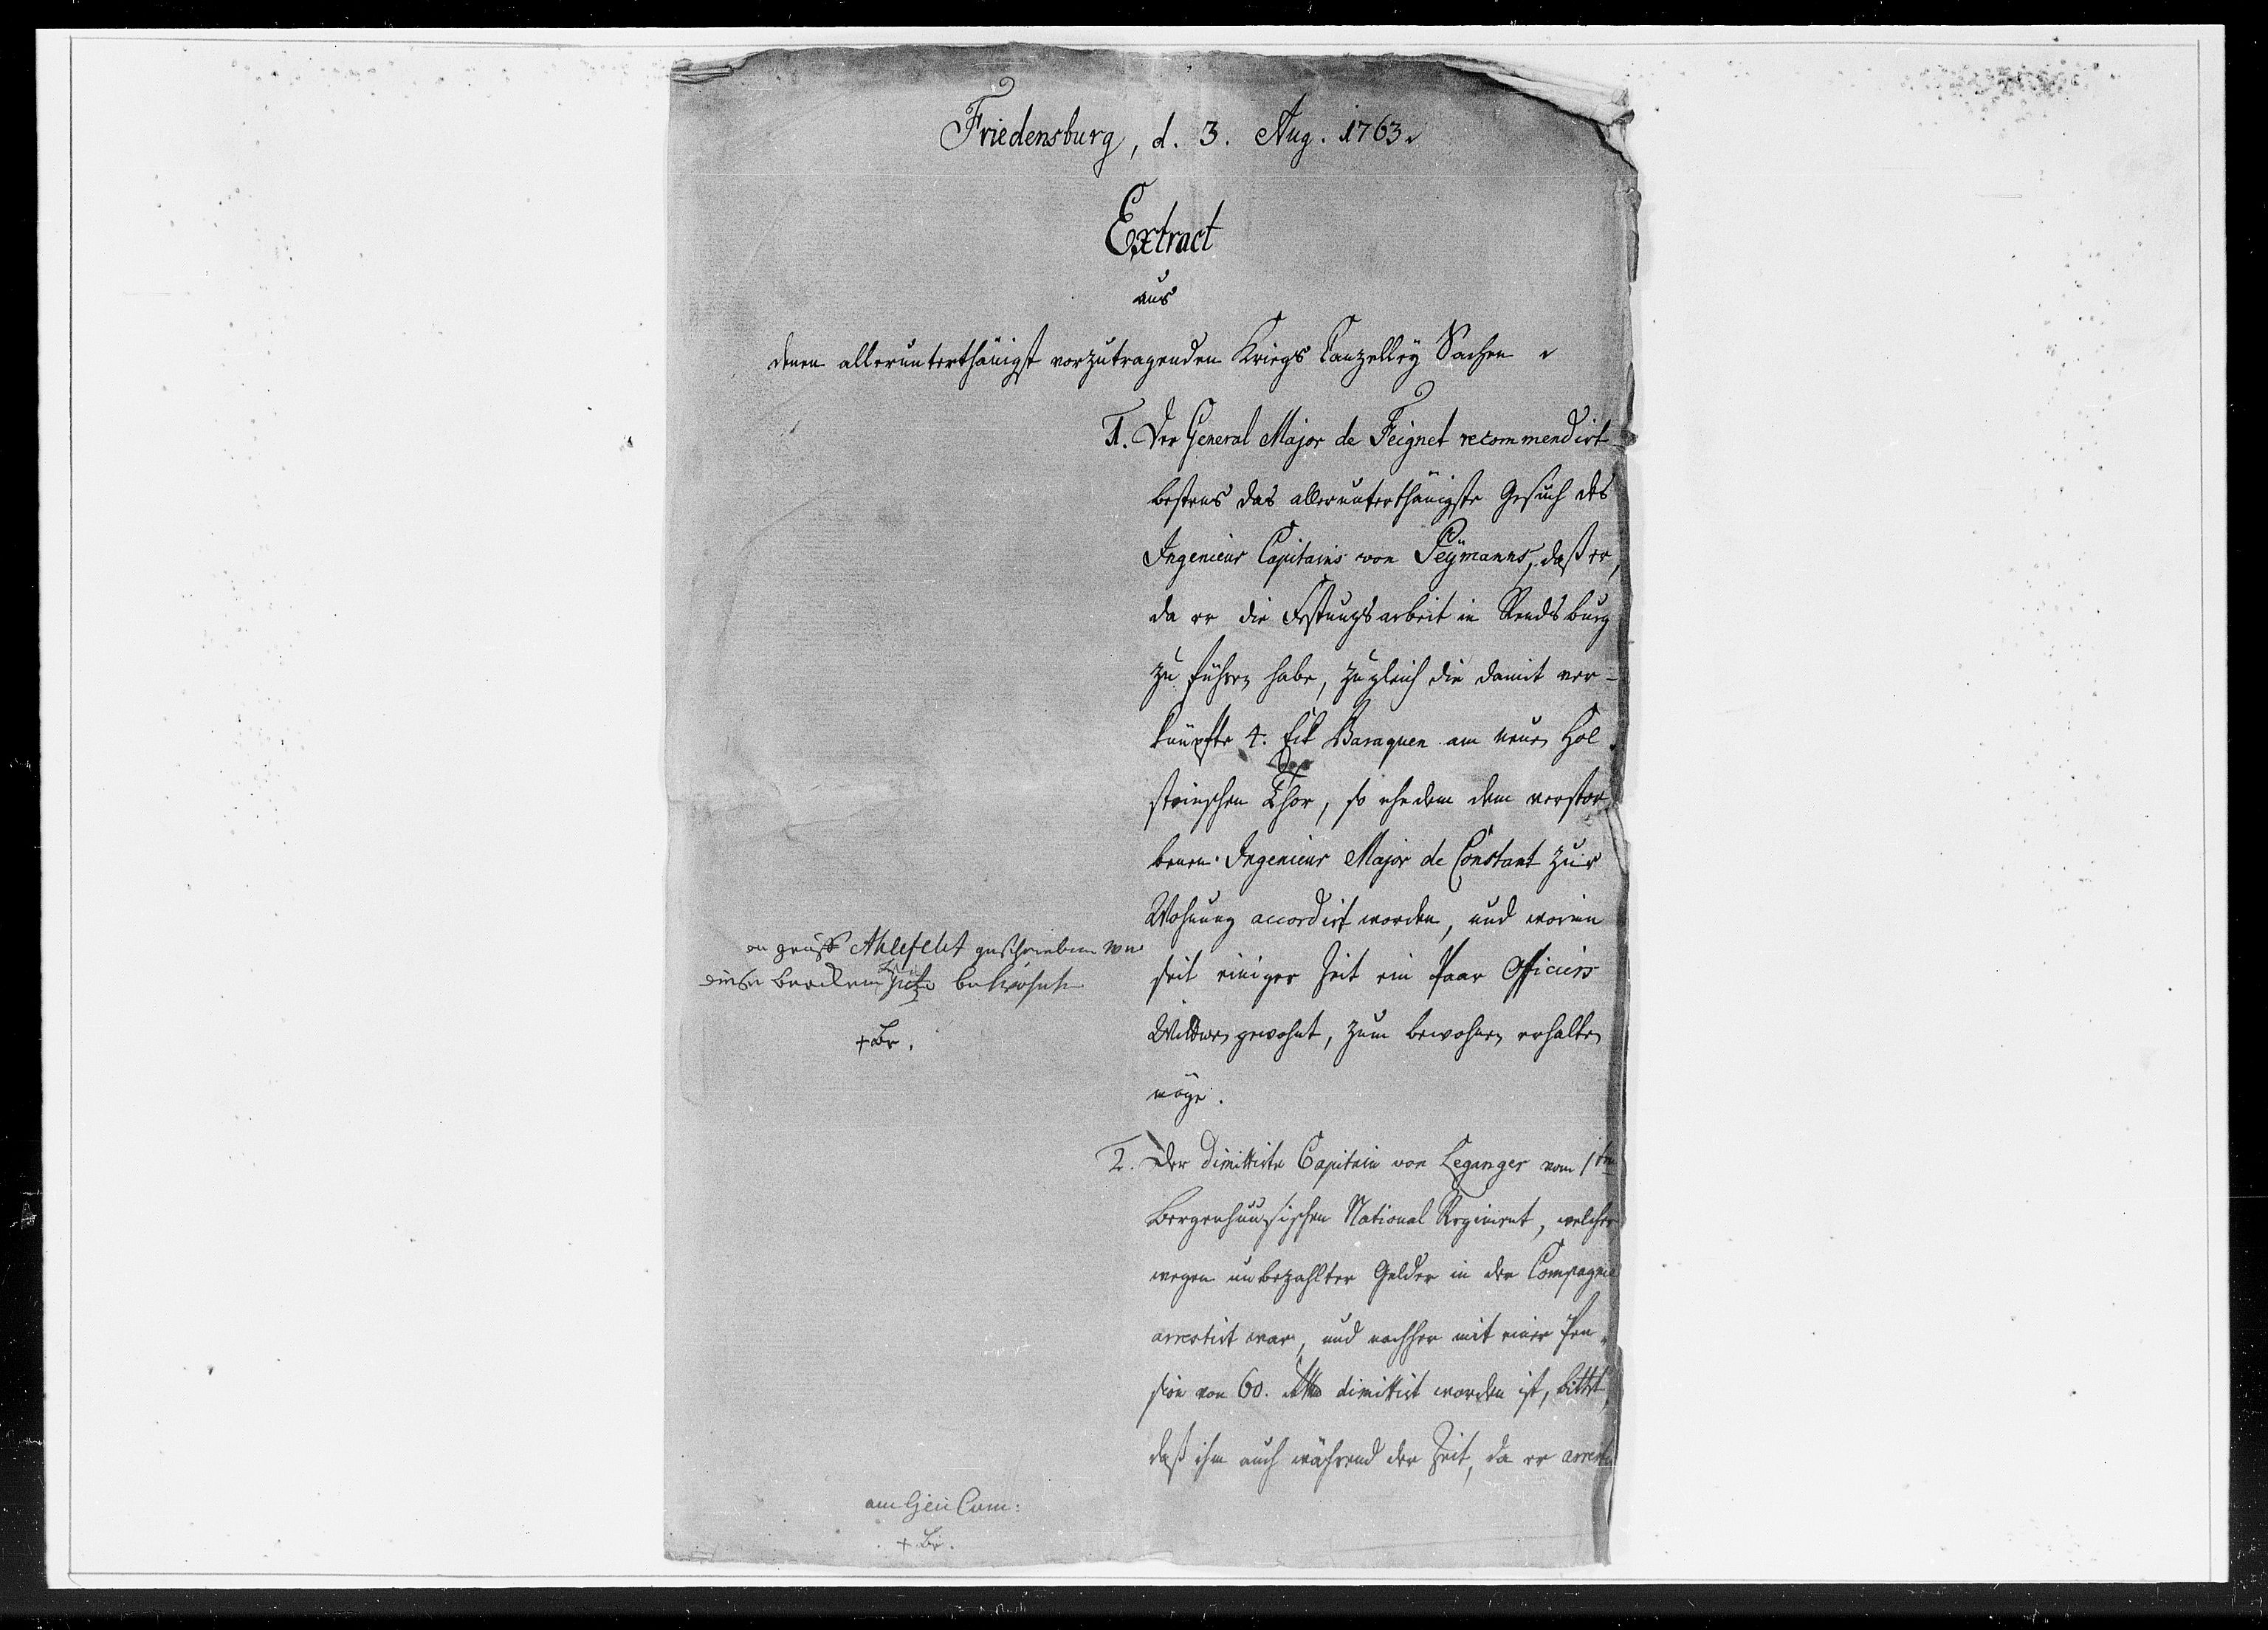 Friedensburg, d. 3. Aug. 1763.
Extract
aus
denen allerunterthänigst vorzutragenden Kriegs Canzelley Sachen
1. Der General Major de Feignet recommendirt
bestens das allerunterthänigste Gesuch des
Ingenieur Capitains von Peymanns, daß er,
da er die Festungsarbeit in Rendsburg
zu führen habe, zugleich die damit ver-
knüpfte 4. Eck Baraquen am neuen Hol
steinschen Thor, so ehedem dem verstor
benen Ingenieur Major de Constant zur
Wohnung accordirt worden, und worinn
seit einiger Zeit ein Paar Officiers
Wittwen gewohnt, zum bewohnen erhalten
möge.
Ahlefeldt geschrieben
bewohnt
+ Br.
2. Der dimittirte Capitain von Leganger vom 1ten
Bergenhuusischen National Regiment, welcher
wegen unbezahlter Gelder in der Compagnie
arrestirt war, und nachher mit einer Pen-
sion von 60. Rthl dimittirt worden ist, bittet,
daß ihm auch während der Zeit, da er arresti
am Gen Com:
+ Br.